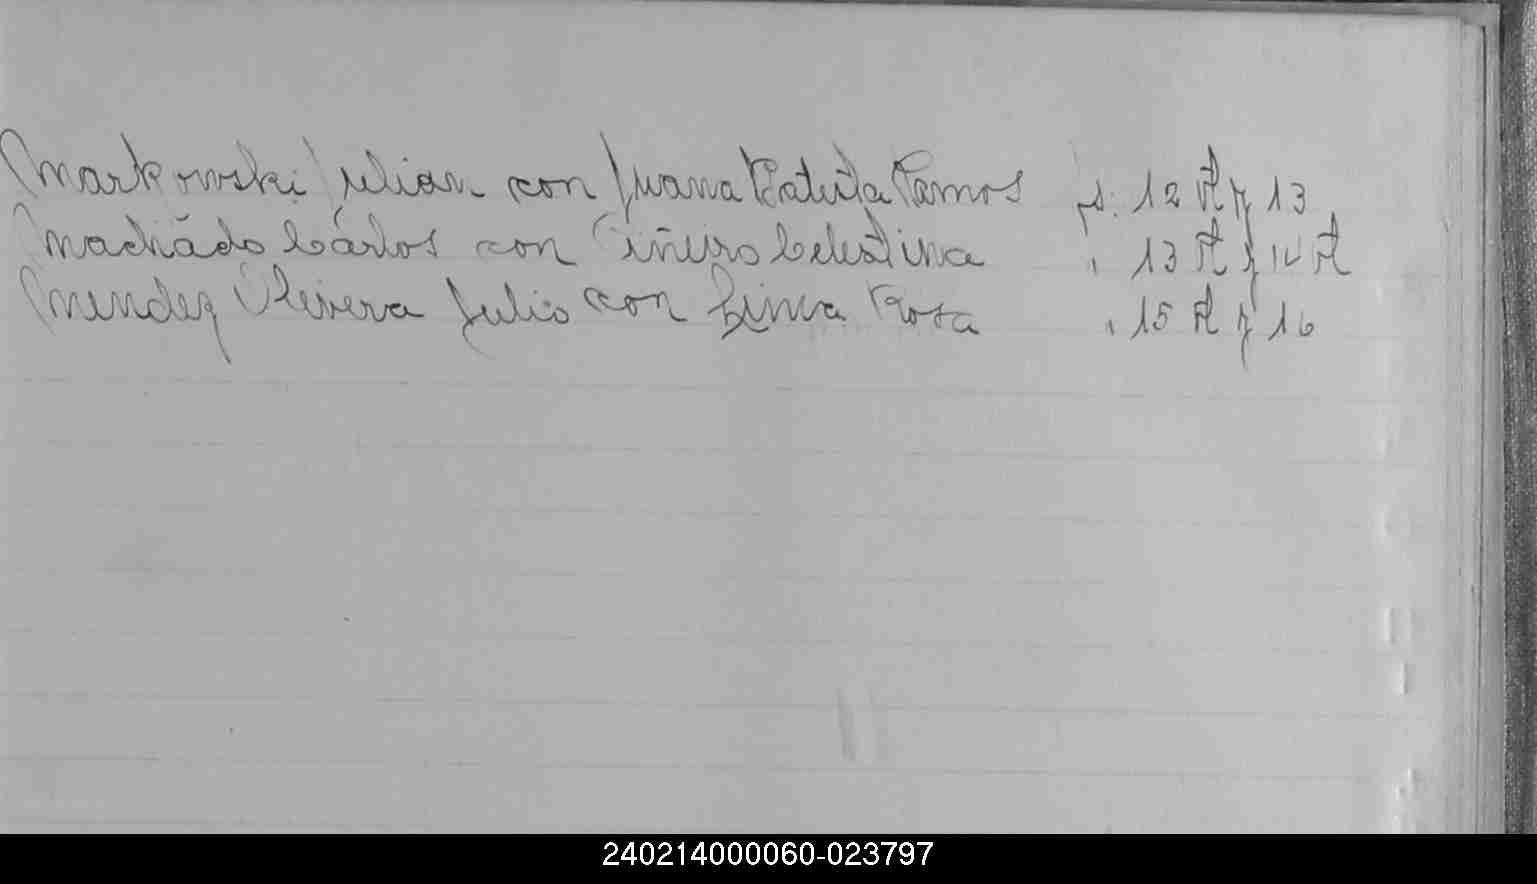 Markowski Julian con Juana Batista Ramos p. 12 vt y 13
Machado Cárlos con Piñeiro Celestina " 13 vt y 14 vt
Mendez Rivera Julio con Lima Rosa " 15 vt y 16
240214000060-023797